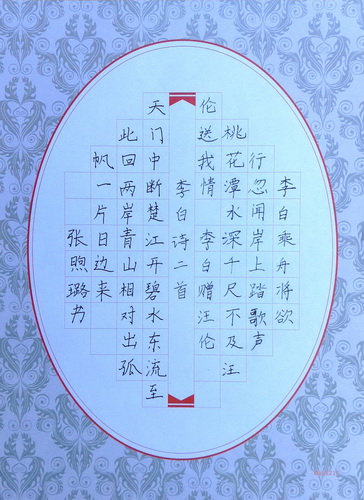 李白乘舟将欲
行忽闻岸上踏歌声
桃花潭水深千尺不及汪
伦送我情 李白赠汪伦
李白诗二首
天门中断楚江开碧水东流至
此回两岸青山相对出孤
帆一片日边来
张煦璐书